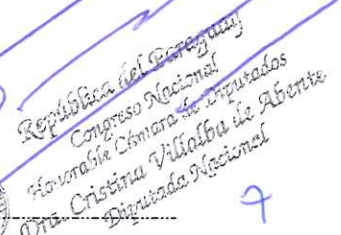 República del Paraguay
Congreso Nacional
Honorable Cámara de Diputados
Dra. Cristina Villalba de Abente
Diputada Nacional
7